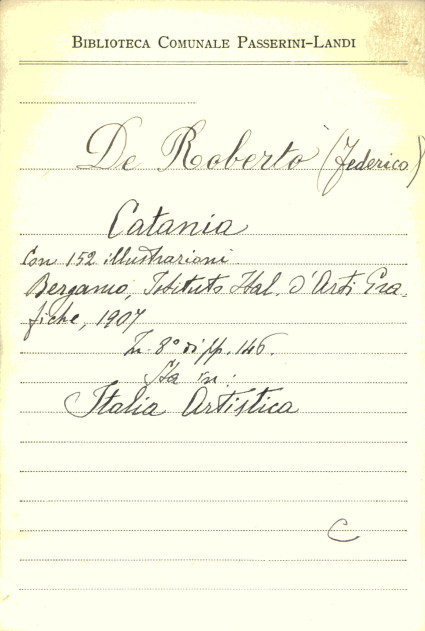 BIBLIOTECA COMUNALE PASSERINI-LANDI
De Roberto (Federico)
Catania
Con 152 illustrazioni
Bergamo, Istituto Ital. d'Arti Gra-
fiche, 1907
In-8° di pp. 146.
Sta in:
Italia Artistica
C